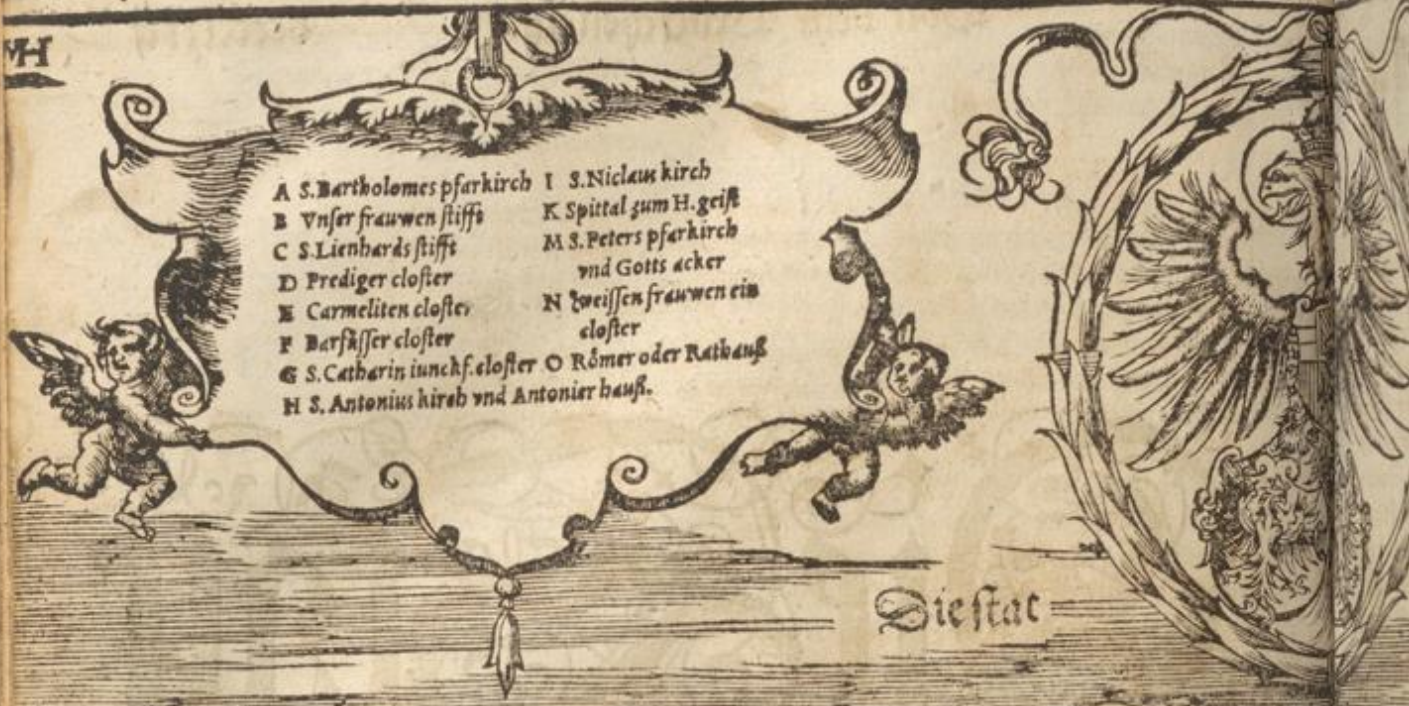 A S. Bartholomes pfarkirch
B Vnser frauwen stifft
C S. Lienhards stifft
D Prediger closter
E Carmeliten closter
F Barfůsser closter
G S. Catharin iunckf. closter
H S. Antonius kirch vnd Antonier hauß.
I S. Niclaus kirch
K Spittal zum H. geist
M S. Peters pfarkirch
vnd Gotts acker
N zweissen frauwen ein
closter
O Rőmer oder Rathauß
Die stat